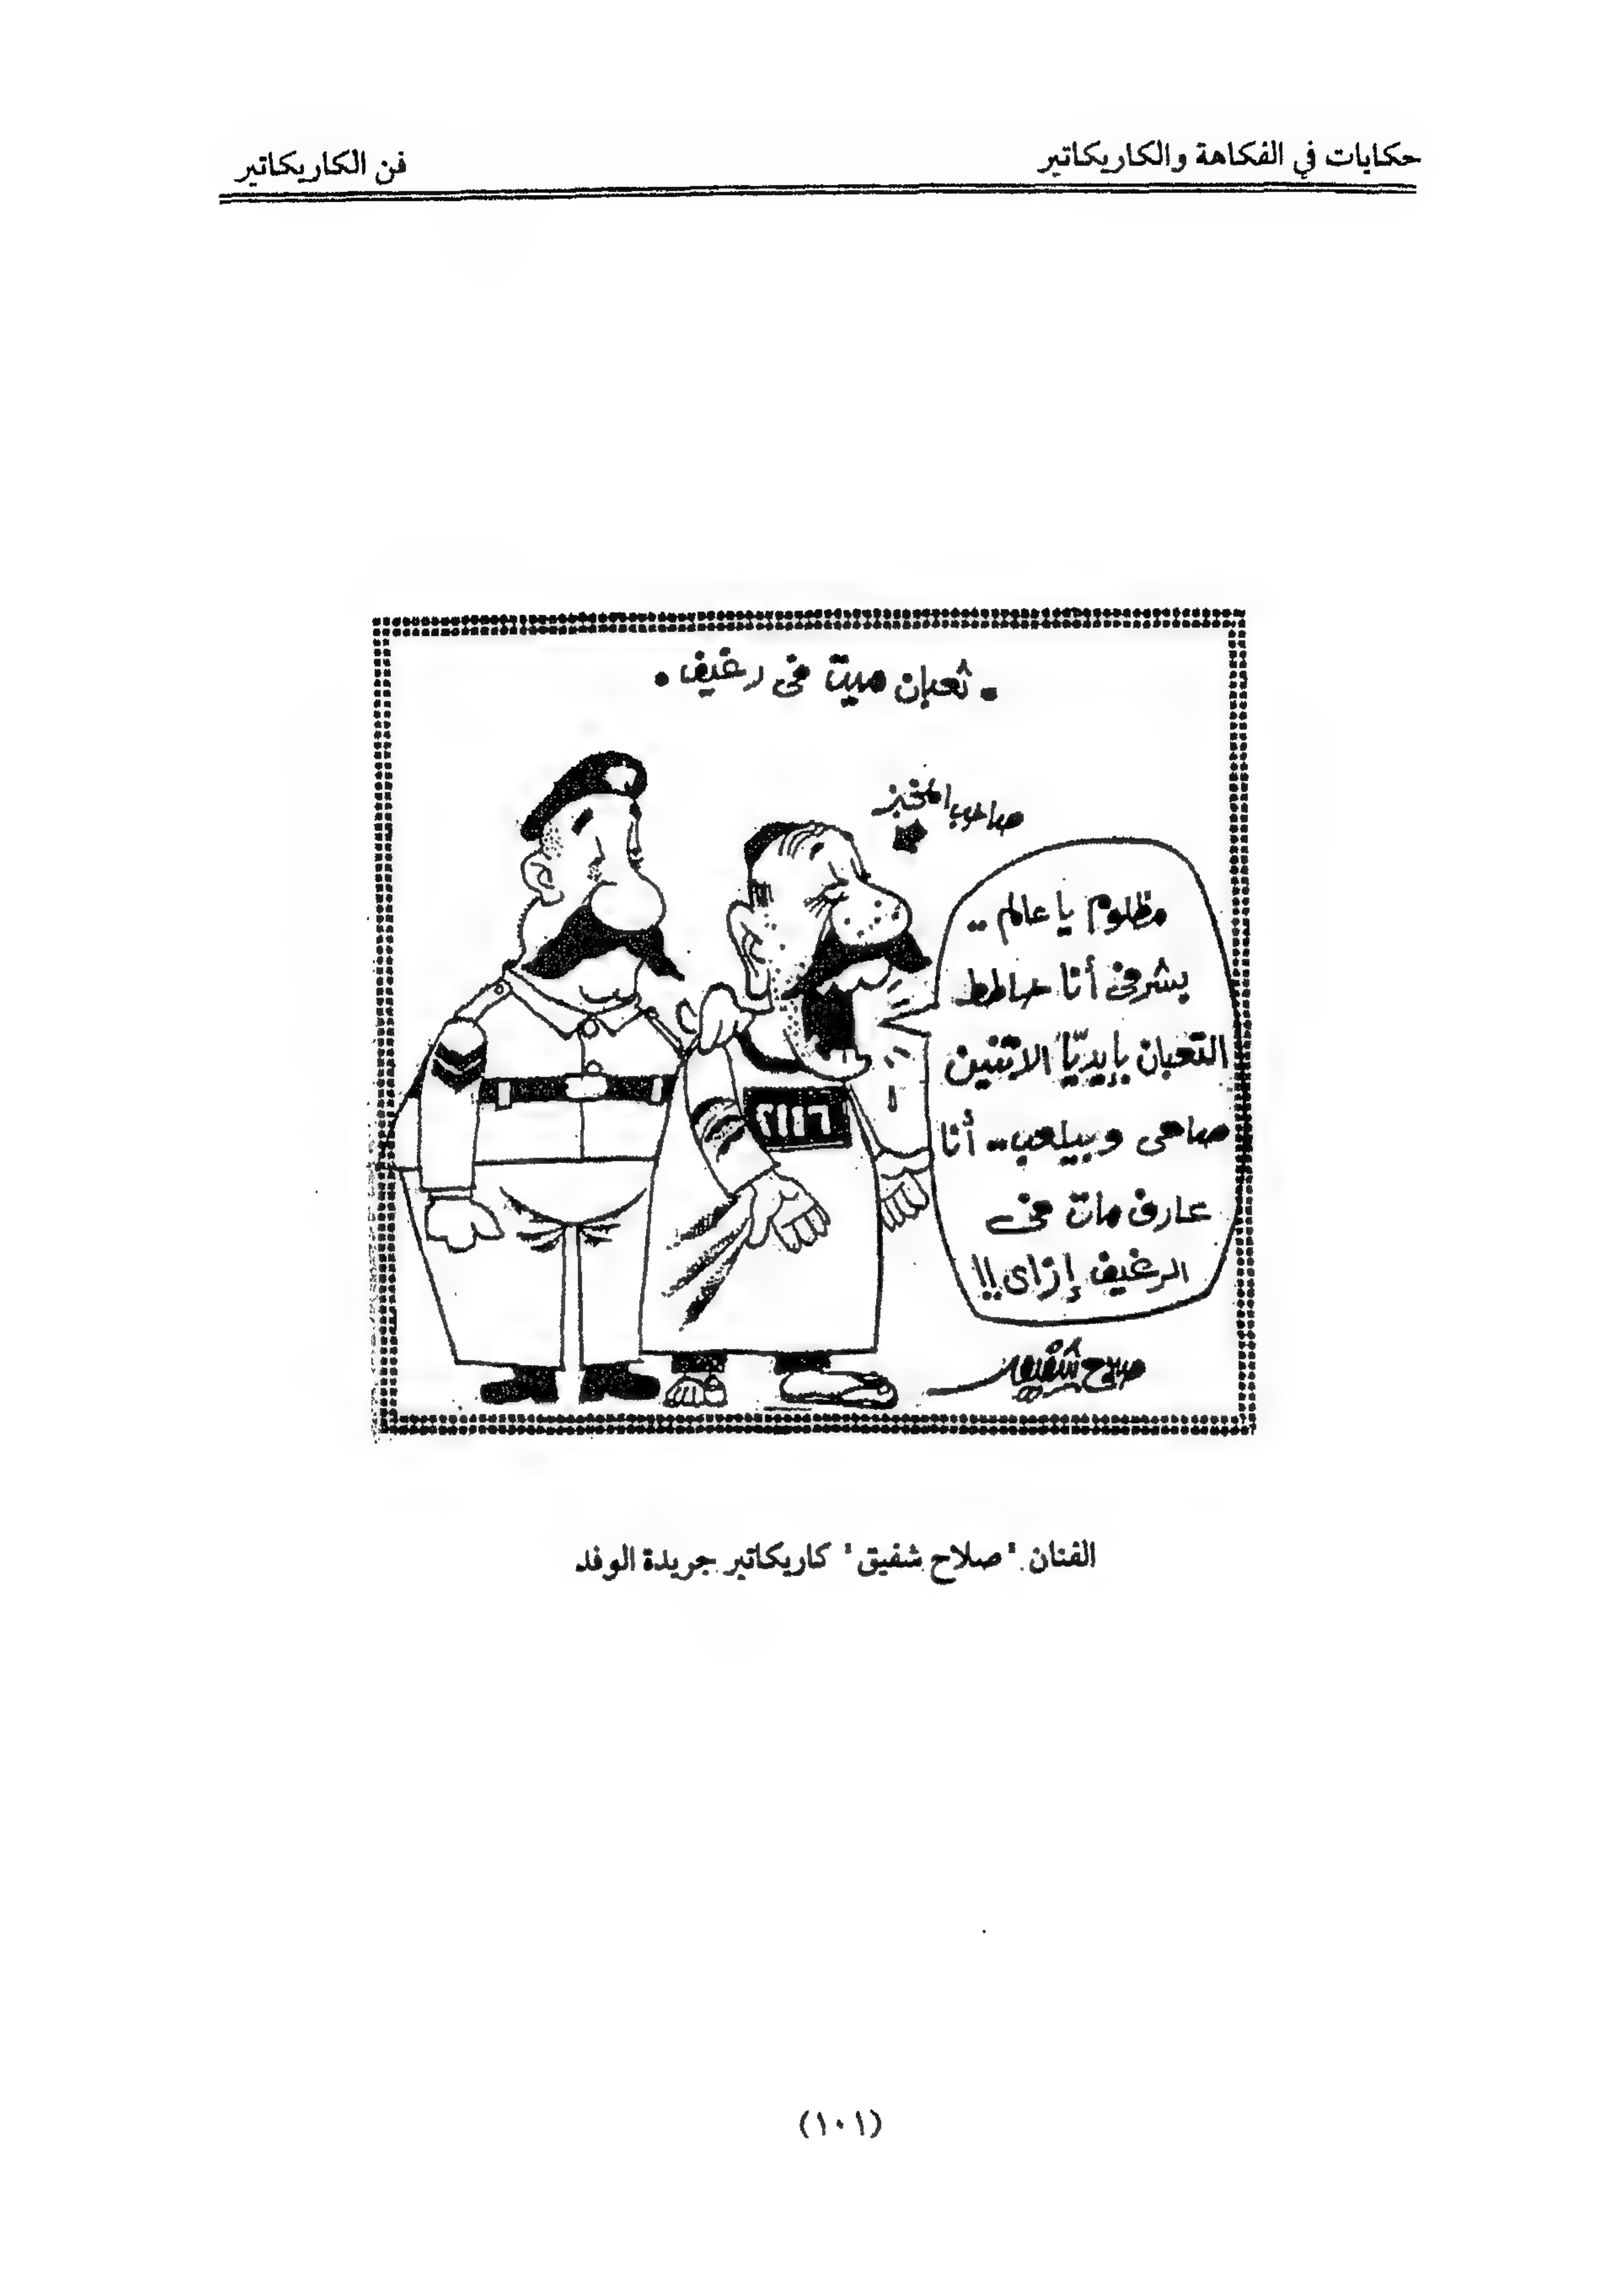 حكايات في الفكاهة والكاريكاتير
فن الكاريكاتير
• ثعبان ميت فى رغيف •
صاحب المخبز
مظلوم يا عالم ..
بشرفى أنا حاطط
التعبان بإيديّا الاتنين
صاحى وبيلعب.. أنا
عارف مات فى
الرغيف إزاى !!
صلاح شفيق
الفنان "صلاح شفيق" كاريكاتير جريدة الوفد
(١٠١)